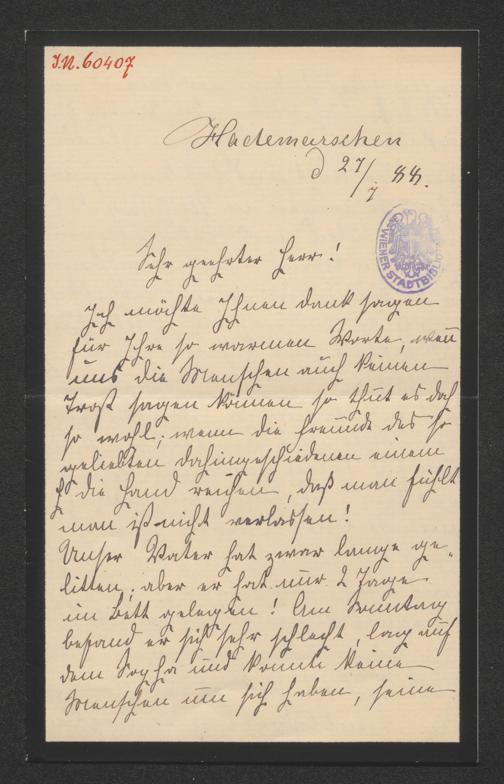 I.N. 60407
Hademarschen
d 27/7 88.
WIENER STADTBIBL
Sehr geehrter Herr!
Ich möchte Ihnen dank sagen
für Ihre so warmen Worte, wen̅
uns die Menschen auch keinen
Trost sagen können so thut es doch
so wohl; wenn die Freunde des so
geliebten dahingeschiedenen einem
die Hand reichen, daß man fühlt
man ist nicht verlassen!
Unser Vater hat zwar lange ge-
litten; aber er hat nur 2 Tage
im Bett gelegen! Am Sonntag
befand er sich sehr schlecht, lag auf
dem Sopha und konnte keine
Menschen um sich haben, seine